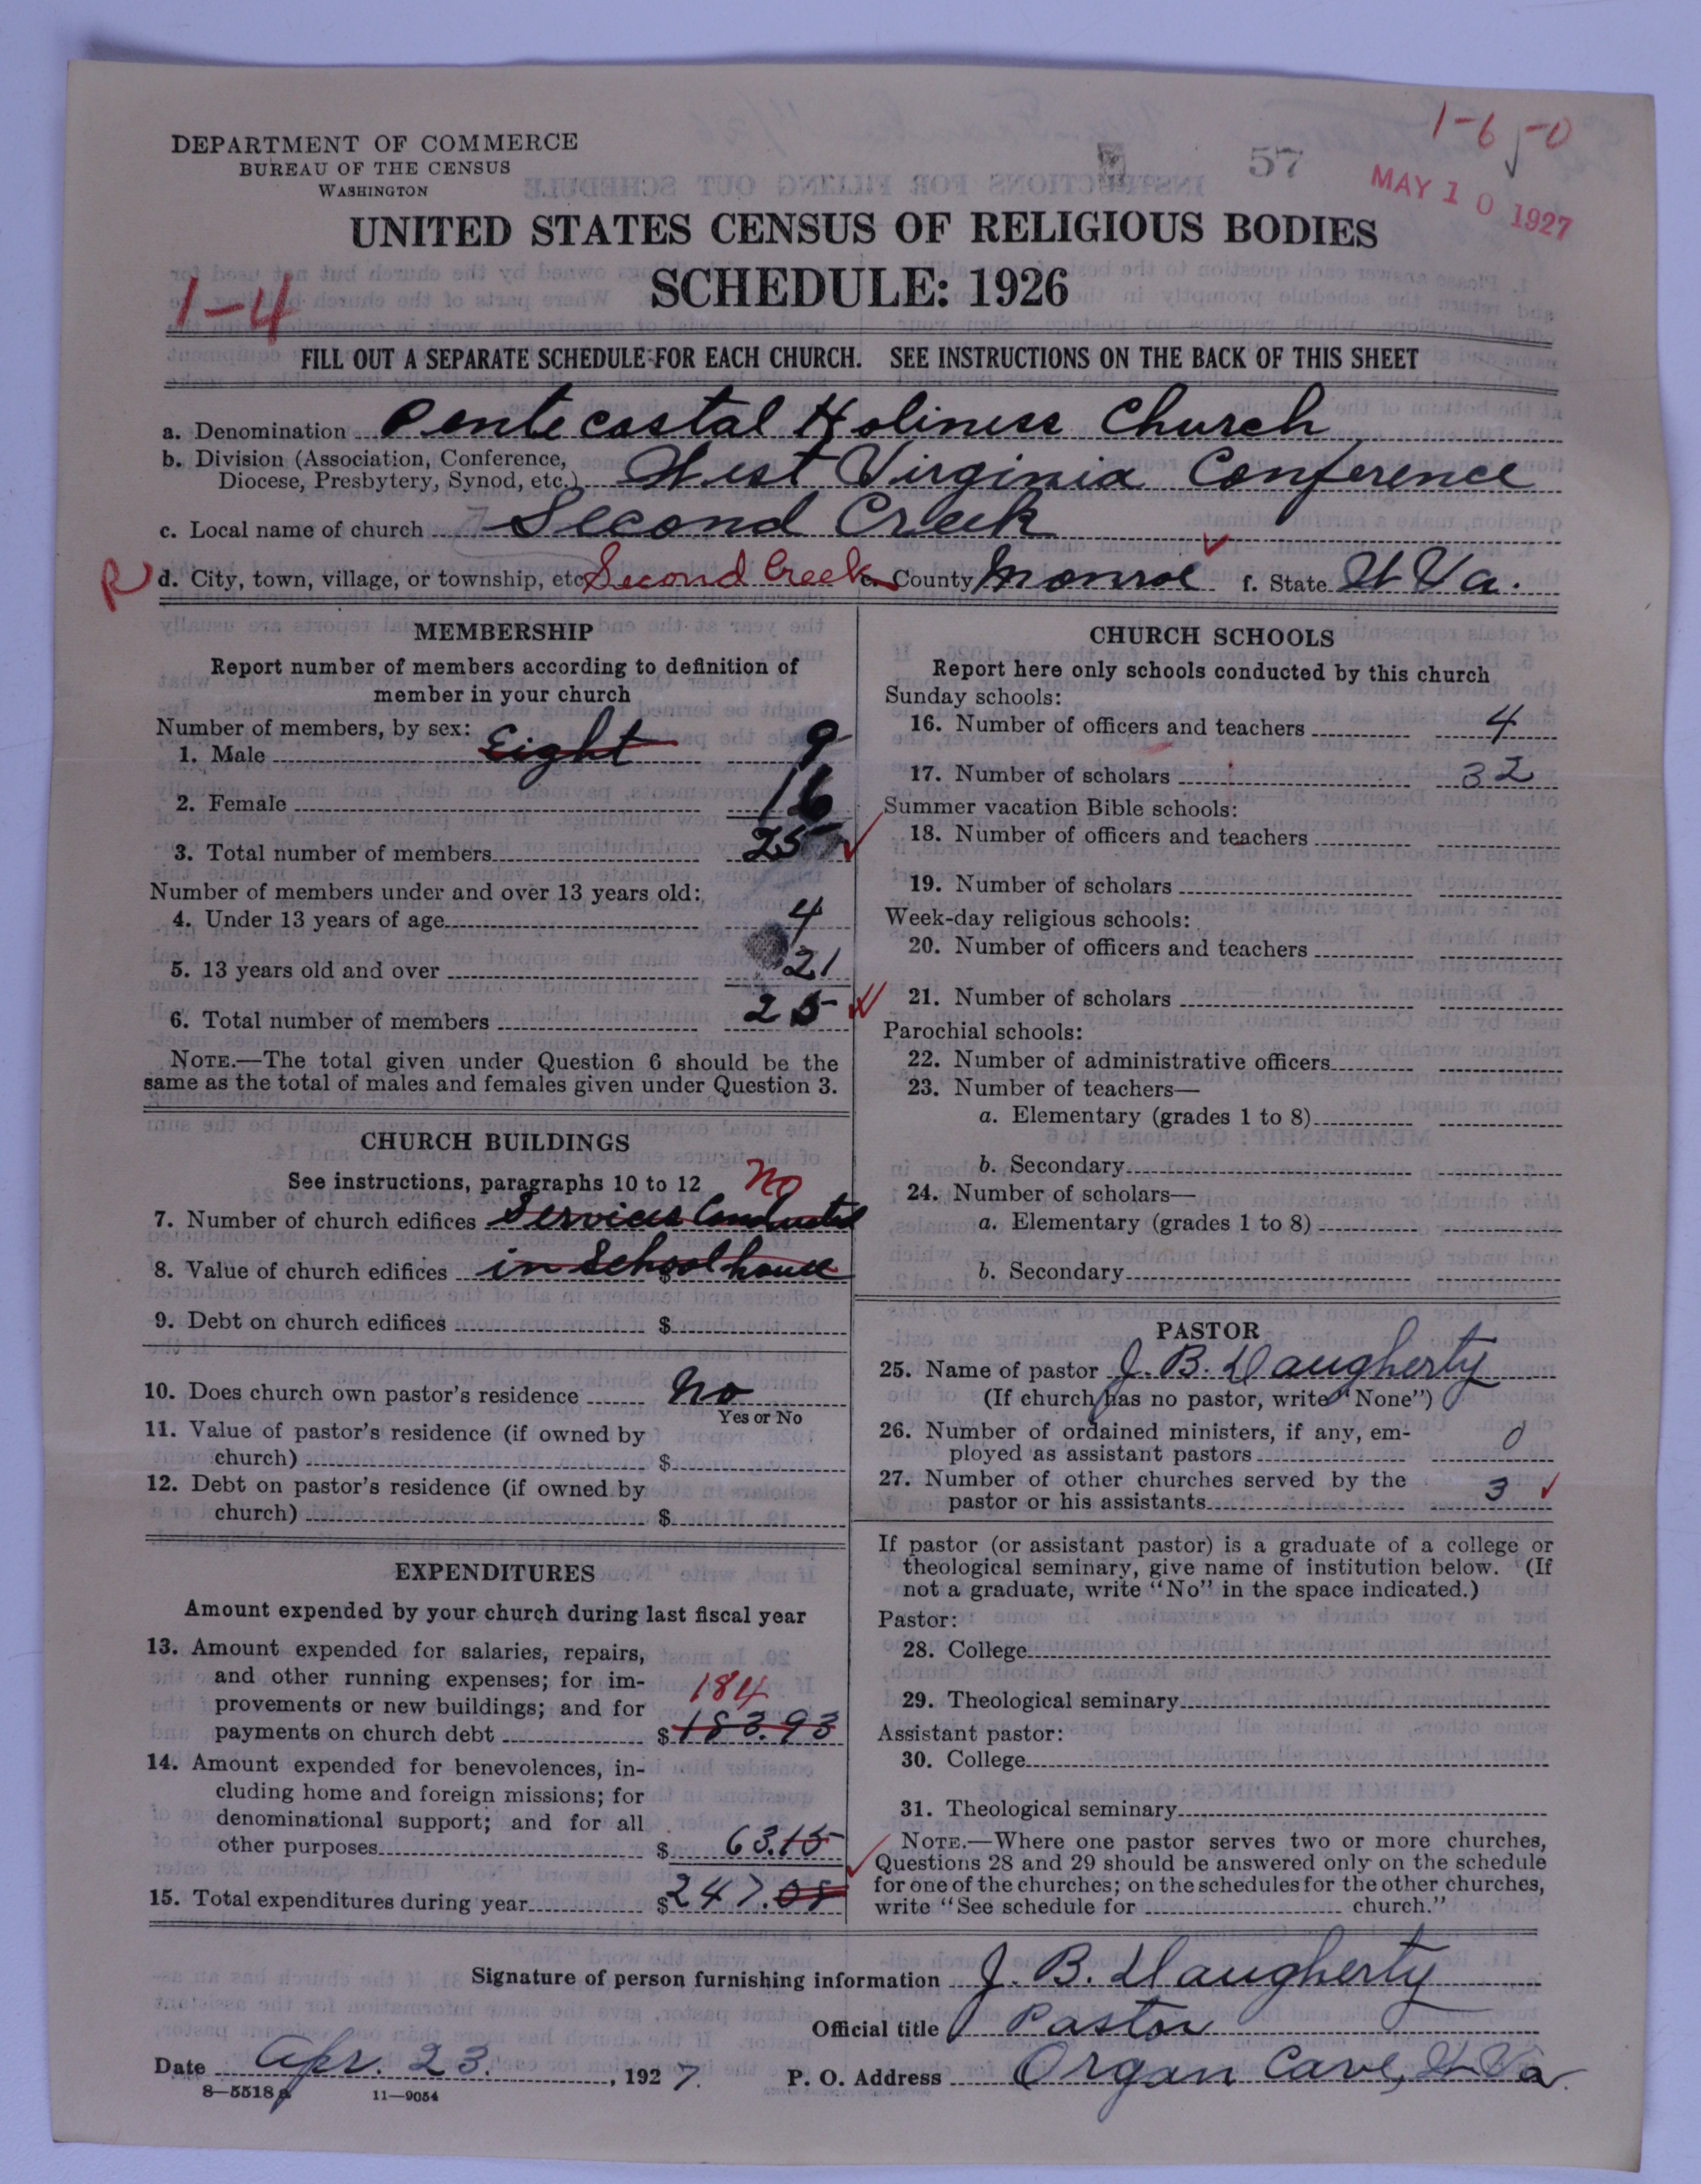 1-6 -0
DEPARTMENT OF COMMERCE
BUREAU OF THE CENSUS
WASHINGTON
57
MAY 10 1927
UNITED STATES CENSUS OF RELIGIOUS BODIES
SCHEDULE: 1926
1-4
FILL OUT A SEPARATE SCHEDULE FOR EACH CHURCH. SEE INSTRUCTIONS ON THE BACK OF THIS SHEET
a. Denomination Pentecostal Holiness Church
b. Division (Association, Conference, Diocese, Presbytery, Synod, etc.) West Virginia Conference
c. Local name of church Second Creek
R d. City, town, village, or township, etc. Second Creek e. County Monroe f. State W Va.
MEMBERSHIP
Report number of members according to definition of
member in your church
Number of members, by sex:
1. Male Eight 9
2. Female 16
3. Total number of members 25
Number of members under and over 13 years old:
4. Under 13 years of age 4
5. 13 years old and over 21
6. Total number of members 25
NOTE.—The total given under Question 6 should be the
same as the total of males and females given under Question 3.
CHURCH BUILDINGS
See instructions, paragraphs 10 to 12 no
7. Number of church edifices Services Conducted
8. Value of church edifices $ in School house
9. Debt on church edifices $
10. Does church own pastor's residence No
Yes or No
11. Value of pastor's residence (if owned by
church) $
12. Debt on pastor's residence (if owned by
church) $
EXPENDITURES
Amount expended by your church during last fiscal year
13. Amount expended for salaries, repairs,
and other running expenses; for im-
provements or new buildings; and for 184
payments on church debt $ 183.93
14. Amount expended for benevolences, in-
cluding home and foreign missions; for
denominational support; and for all
other purposes $ 63.15
15. Total expenditures during year $ 247.08
CHURCH SCHOOLS
Report here only schools conducted by this church
Sunday schools:
16. Number of officers and teachers 4
17. Number of scholars 32
Summer vacation Bible schools:
18. Number of officers and teachers
19. Number of scholars
Week-day religious schools:
20. Number of officers and teachers
21. Number of scholars
Parochial schools:
22. Number of administrative officers
23. Number of teachers—
a. Elementary (grades 1 to 8)
b. Secondary
24. Number of scholars—
a. Elementary (grades 1 to 8)
b. Secondary
PASTOR
25. Name of pastor J. B. Daugherty
(If church has no pastor, write "None")
26. Number of ordained ministers, if any, em-
ployed as assistant pastors 0
27. Number of other churches served by the
pastor or his assistants 3
If pastor (or assistant pastor) is a graduate of a college or
theological seminary, give name of institution below. (If
not a graduate, write "No" in the space indicated.)
Pastor:
28. College
29. Theological seminary
Assistant pastor:
30. College
31. Theological seminary
NOTE.—Where one pastor serves two or more churches,
Questions 28 and 29 should be answered only on the schedule
for one of the churches; on the schedules for the other churches,
write "See schedule for church."
Signature of person furnishing information J. B. Daugherty
Official title Pastor
Date Apr. 23. , 1927. P. O. Address Organ Cave, W Va.
8—5518a 11—9054